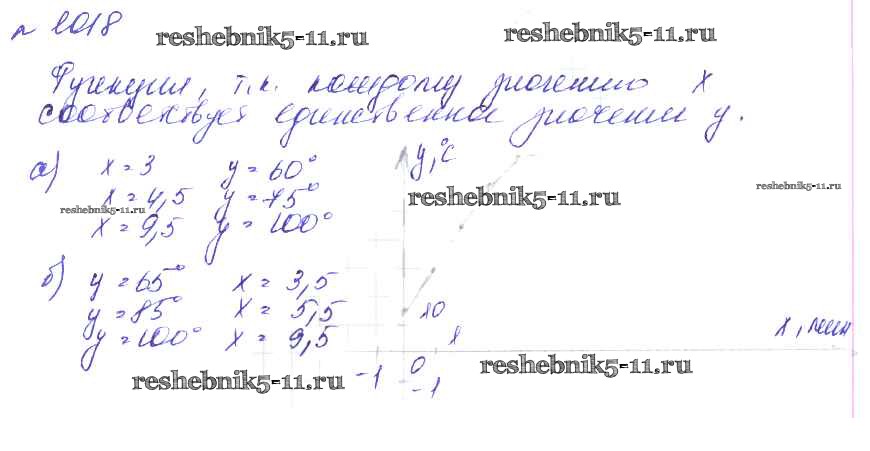 № 1018
reshebnik5-11.ru
reshebnik5-11.ru
Функция, т.к. каждому значению x
соответствует единственное значение y.
а) x = 3 y = 60°
x = 4,5 y = 75°
x = 9,5 y = 100°
reshebnik5-11.ru
y,°C
reshebnik5-11.ru
reshebnik5-11.ru
б) y = 65° x = 3,5
y = 85° x = 5,5
y = 100° x = 9,5
10
1
x, мин
-1
0
-1
reshebnik5-11.ru
reshebnik5-11.ru